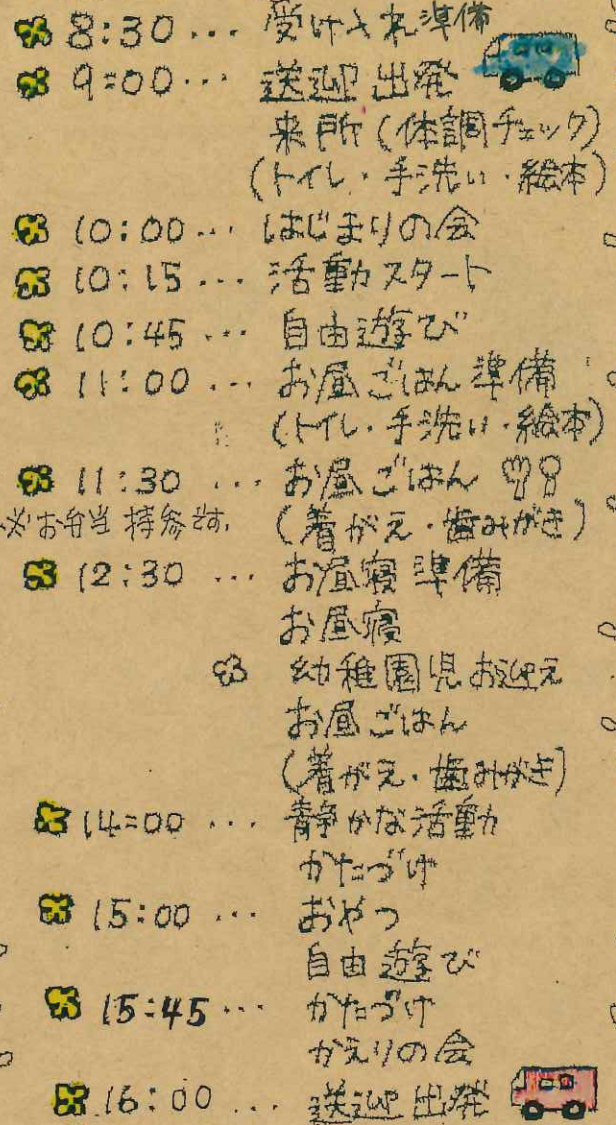 8:30… 受け入れ準備
9:00… 送迎出発
来所(体調チェック)
(トイレ・手洗い・絵本)
10:00… はじまりの会
10:15… 活動スタート
10:45… 自由遊び
11:00… お昼ごはん準備
(トイレ・手洗い・絵本)
11:30 … お昼ごはん
※お弁当持参です。 (着がえ・歯みがき)
12:30 … お昼寝準備
お昼寝
幼稚園児お迎え
お昼ごはん
(着がえ・歯みがき)
14:00 … 静かな活動
かたづけ
15:00 … おやつ
自由遊び
15:45… かたづけ
かえりの会
16:00 … 送迎出発